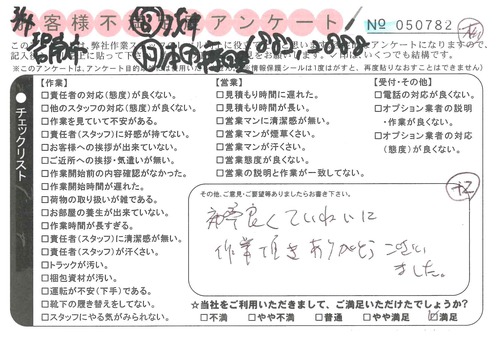 お客様不満足アンケート
№ 050782
【作業】
□責任者の対応(態度)が良くない。
□他のスタッフの対応(態度)が良くない。
□作業を見ていて不安がある。
□責任者(スタッフ)に好感が持てない。
□お客様への挨拶が出来ていない。
□ご近所への挨拶・気遣いが無い。
□作業開始前の内容確認がなかった。
□作業開始時間が遅れた。
□荷物の取り扱いが雑である。
□お部屋の養生が出来ていない。
□作業時間が長すぎる。
□責任者(スタッフ)に清潔感が無い。
□責任者(スタッフ)が汗くさい。
□トラックが汚い。
□梱包資材が汚い。
□運転が不安(下手)である。
□靴下の履き替えをしてない。
□スタッフにやる気がみられない。
【営業】
□見積もり時間に遅れた。
□見積もり時間が長い。
□営業マンに清潔感が無い。
□営業マンが煙草くさい。
□営業マンが汗くさい。
□営業態度が良くない。
□営業の説明と作業が一致してない。
【受付・その他】
□電話の対応が良くない。
□オプション業者の説明
・作業が良くない。
□オプション業者の対応
(態度)が良くない。
チェックリスト
その他、ご意見・ご要望等ありましたらお書き下さい。
手際良くていねいに
作業頂きありがとうござい
ました。
☆当社をご利用いただきまして、ご満足いただけたでしょうか?
□不満 □やや不満 □普通 □やや満足 ☑満足